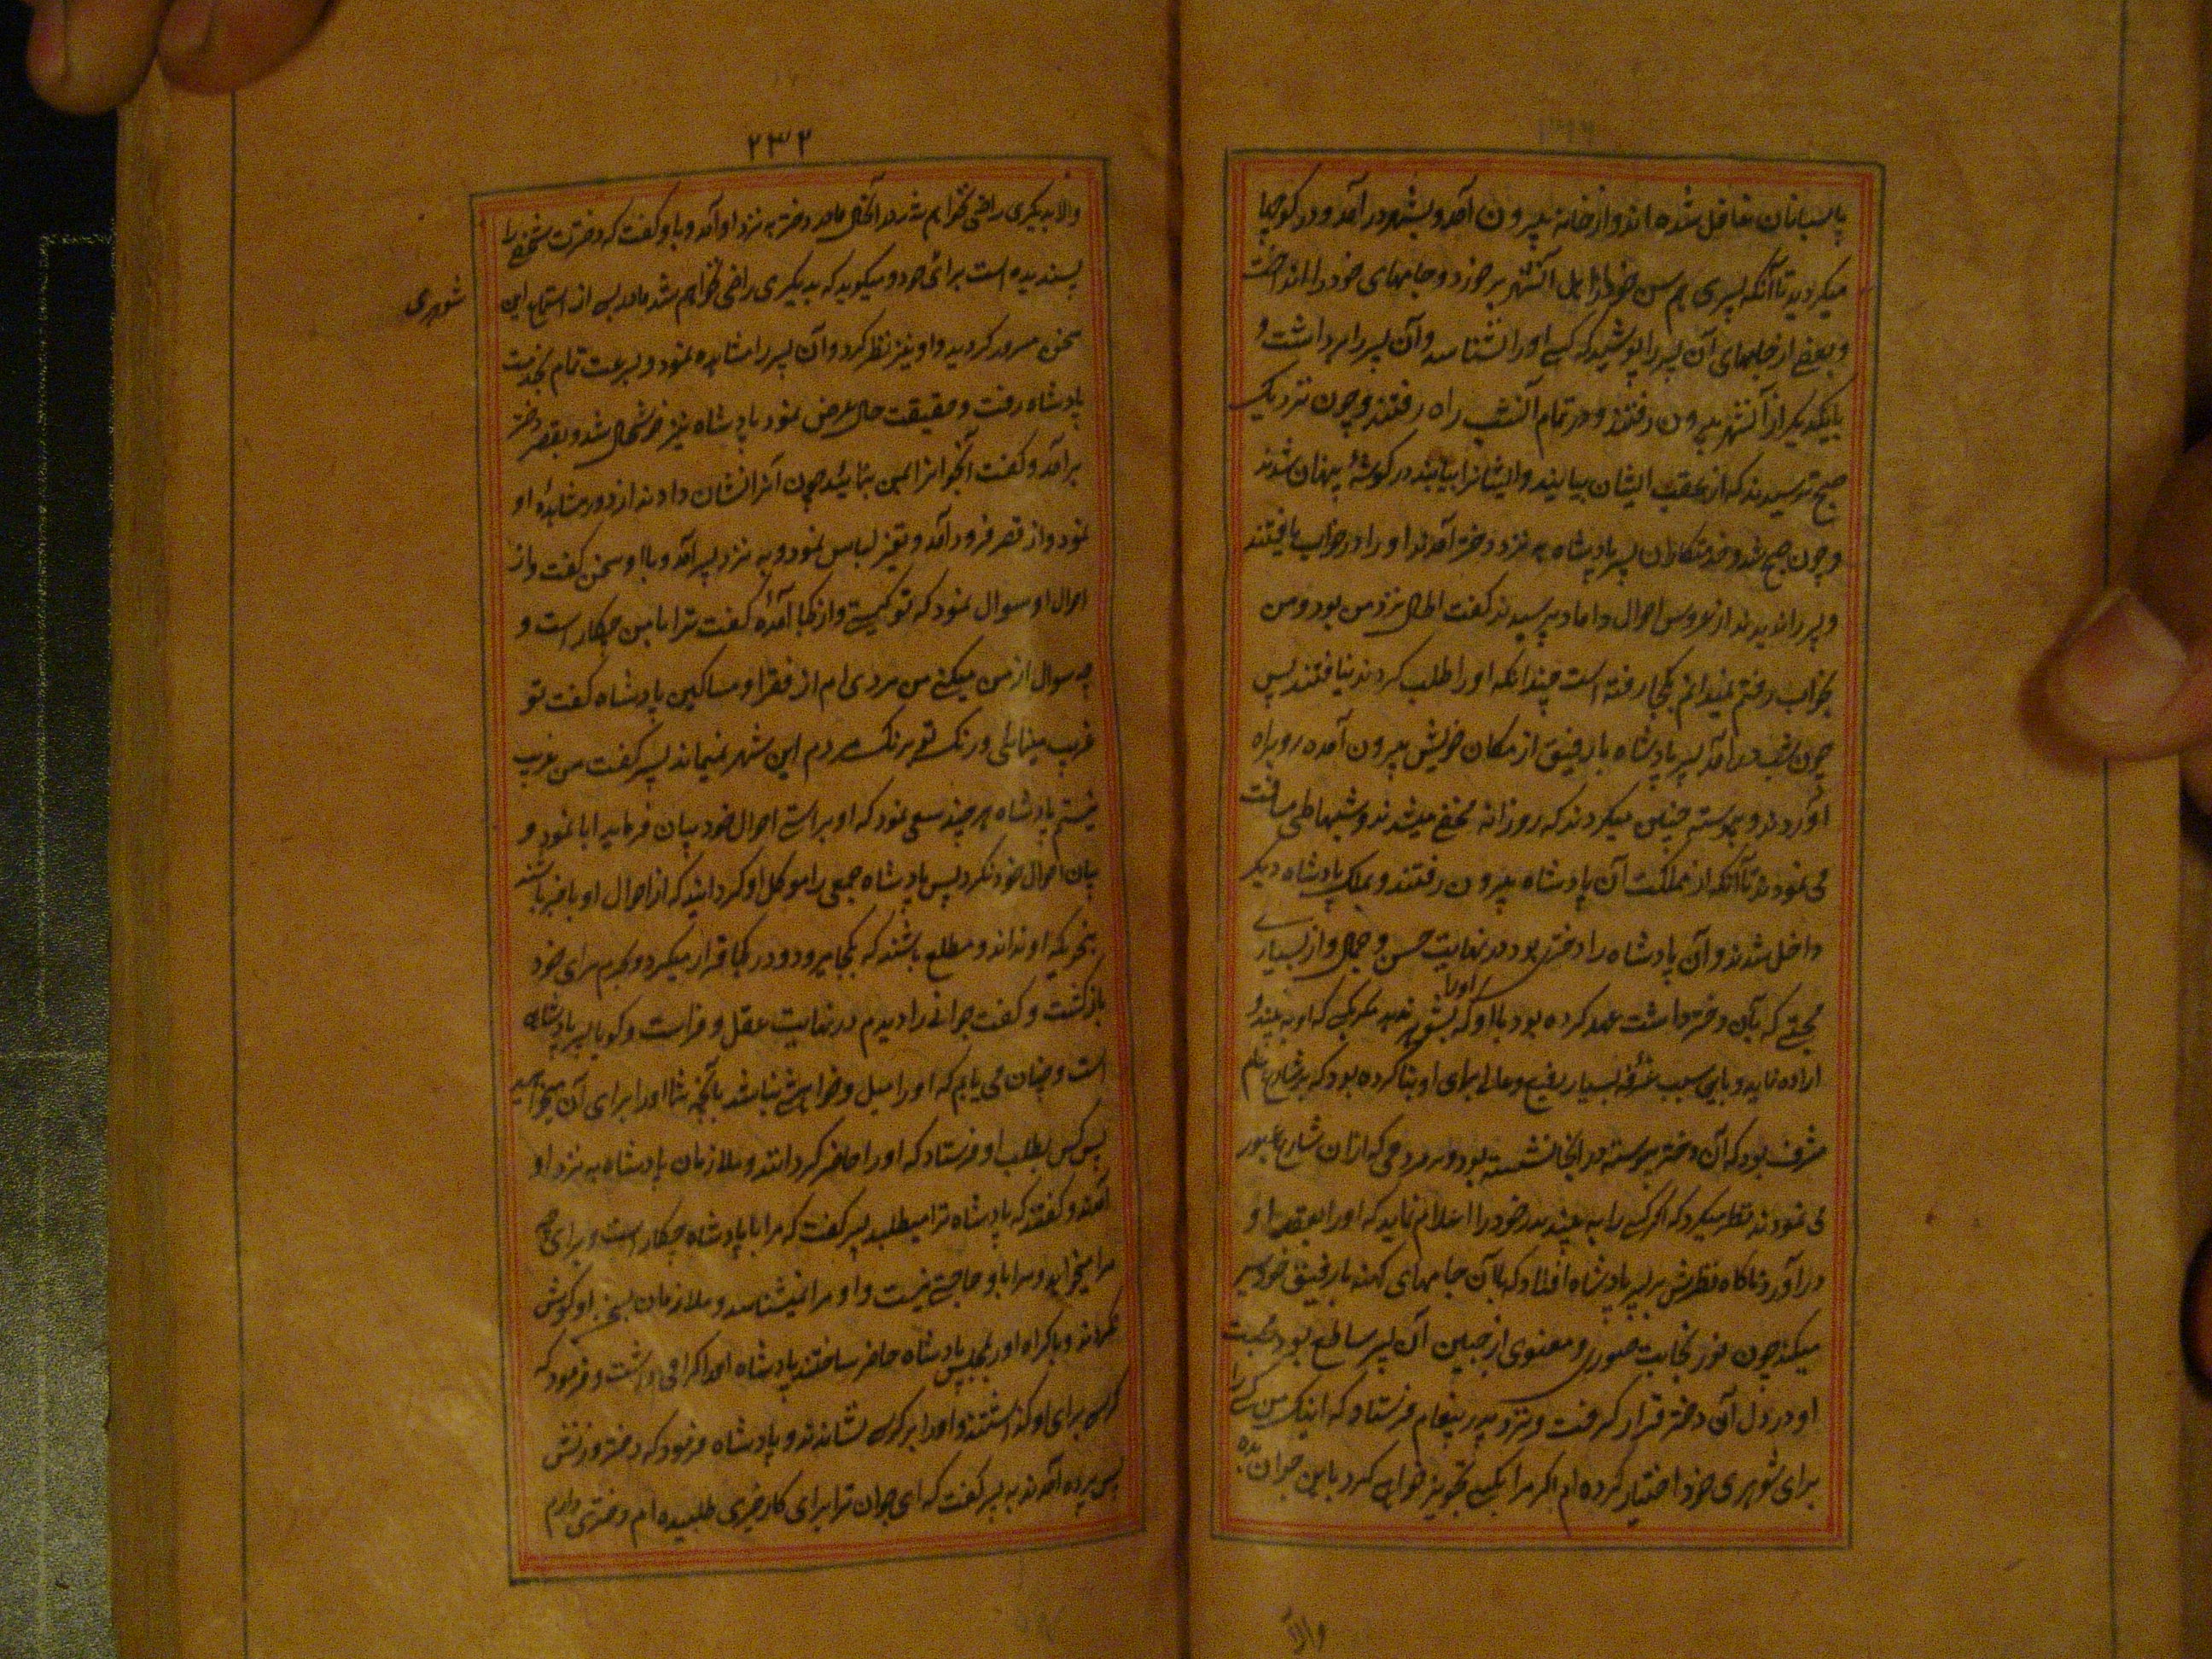 پاسبانان غافل شده اند و از خانه بیرون آمد و بشهر در آمد و در کوچها
میکردید تا آنکه پسری هم سن خود از اهل آنشهر برخورد و جامهای خود را انداخت
و بعضی از جامهای آن پسر را پوشید که کسی او را نشناسد و آن پسر را برداشت و
با یکدیگر از آنشهر بیرون رفتند و در تمام آنشب راه رفتند و چون نزدیک
صبح ترسیدند که از عقب ایشان بیایند و ایشانرا بیابند در کوشهٔ پنهان شدند
و چون صبح شد و خدمتکاران پسر پادشاه به نزد دختر آمدند او را در خواب یافتند
و پسر را ندیدند از عروس احوال داماد پرسیدند گفت الحال نزد من بود و من
بخواب رفتم نمیدانم بکجا رفته است چندانکه او را طلب کردند نیافتند پس
چون شب در آمد پسر پادشاه با رفیق از مکان خویش بیرون آمده رو براه
آوردند و پیوسته چنین میکردند که روزانه مخفی میشدند و شبها طی مسافت
می نمودند تا آنکه از مملکت آن پادشاه بیرون رفتند و بملک پادشاه دیگر
داخل شدند و آن پادشاه را دختری بود در نهایت حسن و جمال و از بسیاری
محبتی که بآن دختر داشت عهد کرده بود با او که بشوهر ندهد اورا مگر بکسی که او به پسندد و
اراده نماید و باین سبب غرفهٔ بسیار رفیع و عالی برای او بنا کرده بود که بر شارع عام
مشرف بود که آن دختر پیوسته در آنجا نشسته بود و بر مردمی که از آن شارع عبور
می نمودند نظر میکرد که اگر کسی را به پسندد پدر خود را اعلام نماید که او را بعقد او
در آورد ناکاه نظرش بر پسر پادشاه افتاد که با آن جامهای کهنه با رفیق خود سیر
میکند چون نور نجابت صوری و معنوی از جبین آن پسر ساطع بود محبت
او در دل آن دختر قرار گرفت و بنزد پدر پیغام فرستاد که اینک من کسی را
برای شوهری خود اختیار کرده ام اگر مرا بکسی تجویز خواهی کرد باین جوان بده
والا
۲۳۲
والا بدیگری راضی نخواهم شد در آنحال مادر دختر به نزد او آمد و باو گفت که دخترت شخصی را
پسندیده است برای خود و میگوید که بدیگری راضی نخواهم شد مادر پس از استماع این
شوهری
سخن مسرور گردید و او نیز نظر کرد و آن پسر را مشاهده نمود و بسرعت تمام بخدمت
پادشاه رفت و حقیقت حال عرض نمود پادشاه نیز خوشحال شد و بقصر دختر
برآمد و گفت آنجوانرا بمن بنمائید چون آنرا نشان دادند از دور مشاهدهٔ او
نمود و از قصر فرود آمد و تغیر لباس نمود و به نزد پسر آمد و با او سخن گفت و از
احوال او سوال نمود که تو کیستی و از کجا آمدهٔ گفت ترا با من چکار است و
چه سوال از من میکنی من مردی ام از فقرا و مساکین پادشاه گفت تو
غریب مینمائی و رنک تو برنک مردم این شهر نمیماند پسر گفت من غریب
نیستم پادشاه هر چند سعی نمود که او براستی احوال خود بیان فرماید ابا نمود و
بیان احوال خود نکرد پس پادشاه جمعی را موکل او گردانید که از احوال او باخبر باشند
بنحویکه او نداند و مطلع باشند که بکجا میرود و در کجا قرار میگیرد و بحرم سرای خود
بازگشت و گفت جوانی را دیدم در نهایت عقل و فراست و گویا پسر پادشاه
است و چنان می یابم که او را میل و خواهشی نباشد بآنچه شما او را برای آن میخواهید
پس کس بطلب او فرستاد که او را حاضر گردانند و ملازمان پادشاه به نزد او
آمدند و گفتند که پادشاه ترا میطلبد پسر گفت که مرا با پادشاه چکار است و برای چه
مرا میخواهد و مرا باو حاجتی نیست و او مرا نمیشناسد و ملازمان بسخن او گوش
نکردند و باکراه او را بمجلس پادشاه حاضر ساختند پادشاه او را گرامی داشت و فرمود که
کرسی برای او گذاشتند و او را بر کرسی نشاندند و پادشاه فرمود که دختر و زنش
پس پرده آمدند به پسر گفت که ای جوان ترا برای کار خیری طلبیده ام دختری دارم